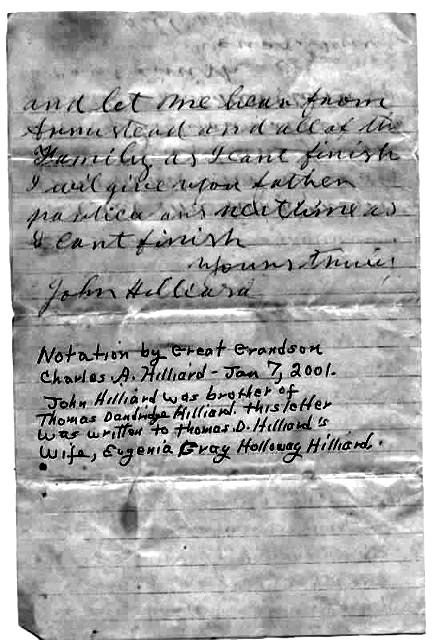 and let me hear from
Armistead and all of the
Family as I cant finish
I wil give you father
partica ours next time as
I cant finish
Yours Truly
John Hilliard
Notation by Great Grandson
Charles A. Hilliard - Jan 7, 2001.
John Hilliard was brother of
Thomas Dandridge Hilliard. this letter
was written to Thomas D. Hilliard's
Wife, Eugenia Gray Holloway Hilliard.